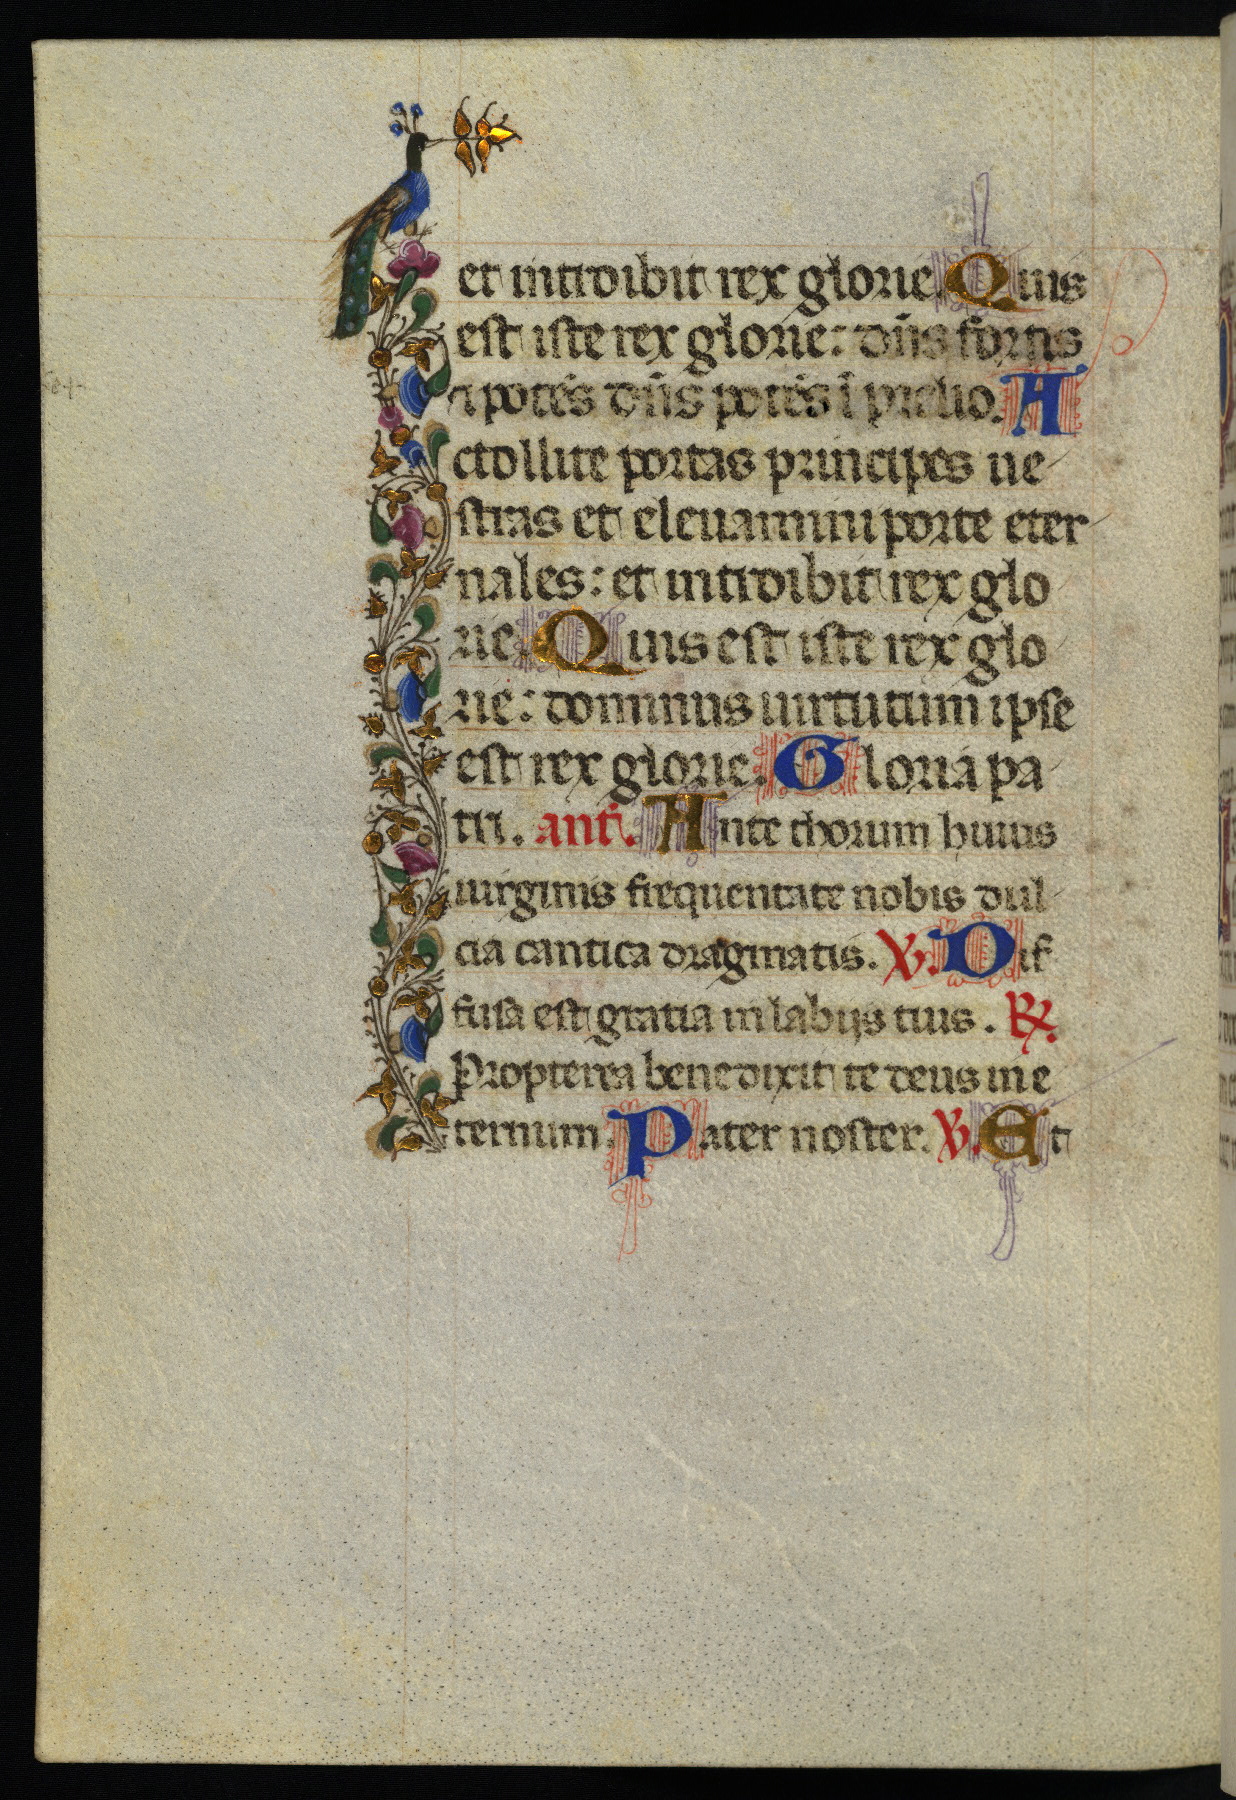 et introibit rex glorie. Quis
est iste rex glorie: dñs fortis
⁊ potẽs dñs potẽs ĩ prelio. A
ctollite portas principes ue
stras et eleuamini porte eter
nales: et introibit rex glo
rie. Quis est iste rex glo
rie: dominus uirtutum ipse
est rex glorie. Gloria pa
tri. ant̃. Ante thorum huius
uirginis frequentate nobis dul
cia cantica dragmatis. ℣. Dif
fusa est gratia in labijs tuis. ℟.
Propterea benedixit te deus in e
ternum. Pater noster. ℣. Et